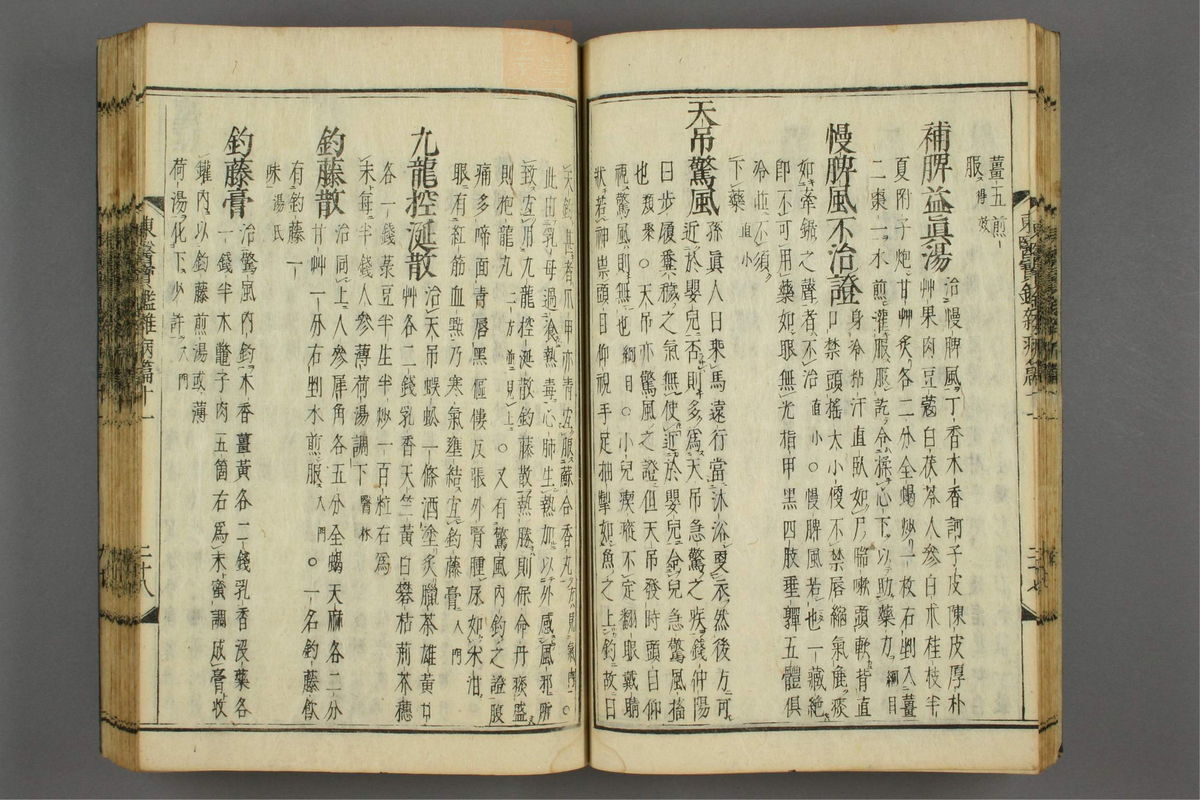 薑五煎
服 得效
補脾益眞湯 治慢脾風丁香木香訶子皮陳皮厚朴
艸果肉豆蔻白茯苓人參白朮桂枝半
夏附子炮甘艸炙各二分全蝎炒一枚右剉入薑
二棗一水煎灌服服訖令揉心下以助藥力 綱目
慢脾風不治證 身冷粘汗直臥如尸喘嗽頭軟背直
口禁頭搖大小便不禁脣縮氣麄痰
如牽鋸之聲者不治 直小 ○慢脾風若一藏絶
卽不可用藥如眼無光指甲黑四肢垂嚲五體俱
冷並不須
下藥 直小
天吊驚風 孫眞人曰乘馬遠行當沐浴更衣然後方可
近於嬰兒否則多爲天吊急驚之疾錢仲陽
曰步履糞穢之氣無使近於嬰兒令兒急驚風搐
也 類聚 ○天吊亦驚風之證但天吊發時頭目仰
視驚風則無也 綱目 ○小兒瘈瘲不定翻眼戴睛
狀若神祟頭目仰視手足抽掣如魚之上釣故曰
天釣甚者爪甲亦靑宜服蘇合香丸 方見氣門 ○
此由乳母過食熱毒心肺生熱加以外感風邪所
致宜用九龍控涎散釣藤散熱勝則保命丹痰盛
則抱龍丸 二方並見上 ○又有驚風內釣之證腹
痛多啼面靑脣黑傴僂反張外腎腫尿如米泔
眼有紅筋血點乃寒氣壅結宜釣藤膏 入門
九龍控涎散 治天吊蜈蚣一條酒塗炙臘茶雄黃甘
艸各二錢乳香天竺黃白礬枯荊芥穗
各一錢菉豆半生半炒一百粒右爲
末每半錢人參薄荷湯調下 醫林
釣藤散 治同上人參犀角各五分全蝎天麻各二分
甘艸一分右剉水煎服 入門 ○一名釣藤飮
有釣藤一
味 湯氏
釣藤膏 治驚風內釣木香薑黃各二錢乳香沒藥各
一錢半木鼈子肉五箇右爲末蜜調成膏收
罐內以釣藤煎湯或薄
荷湯化下少許 入門
東醫寶鑑雜病篇十一
二十七
東醫寶鑑雜病篇十一
二十八